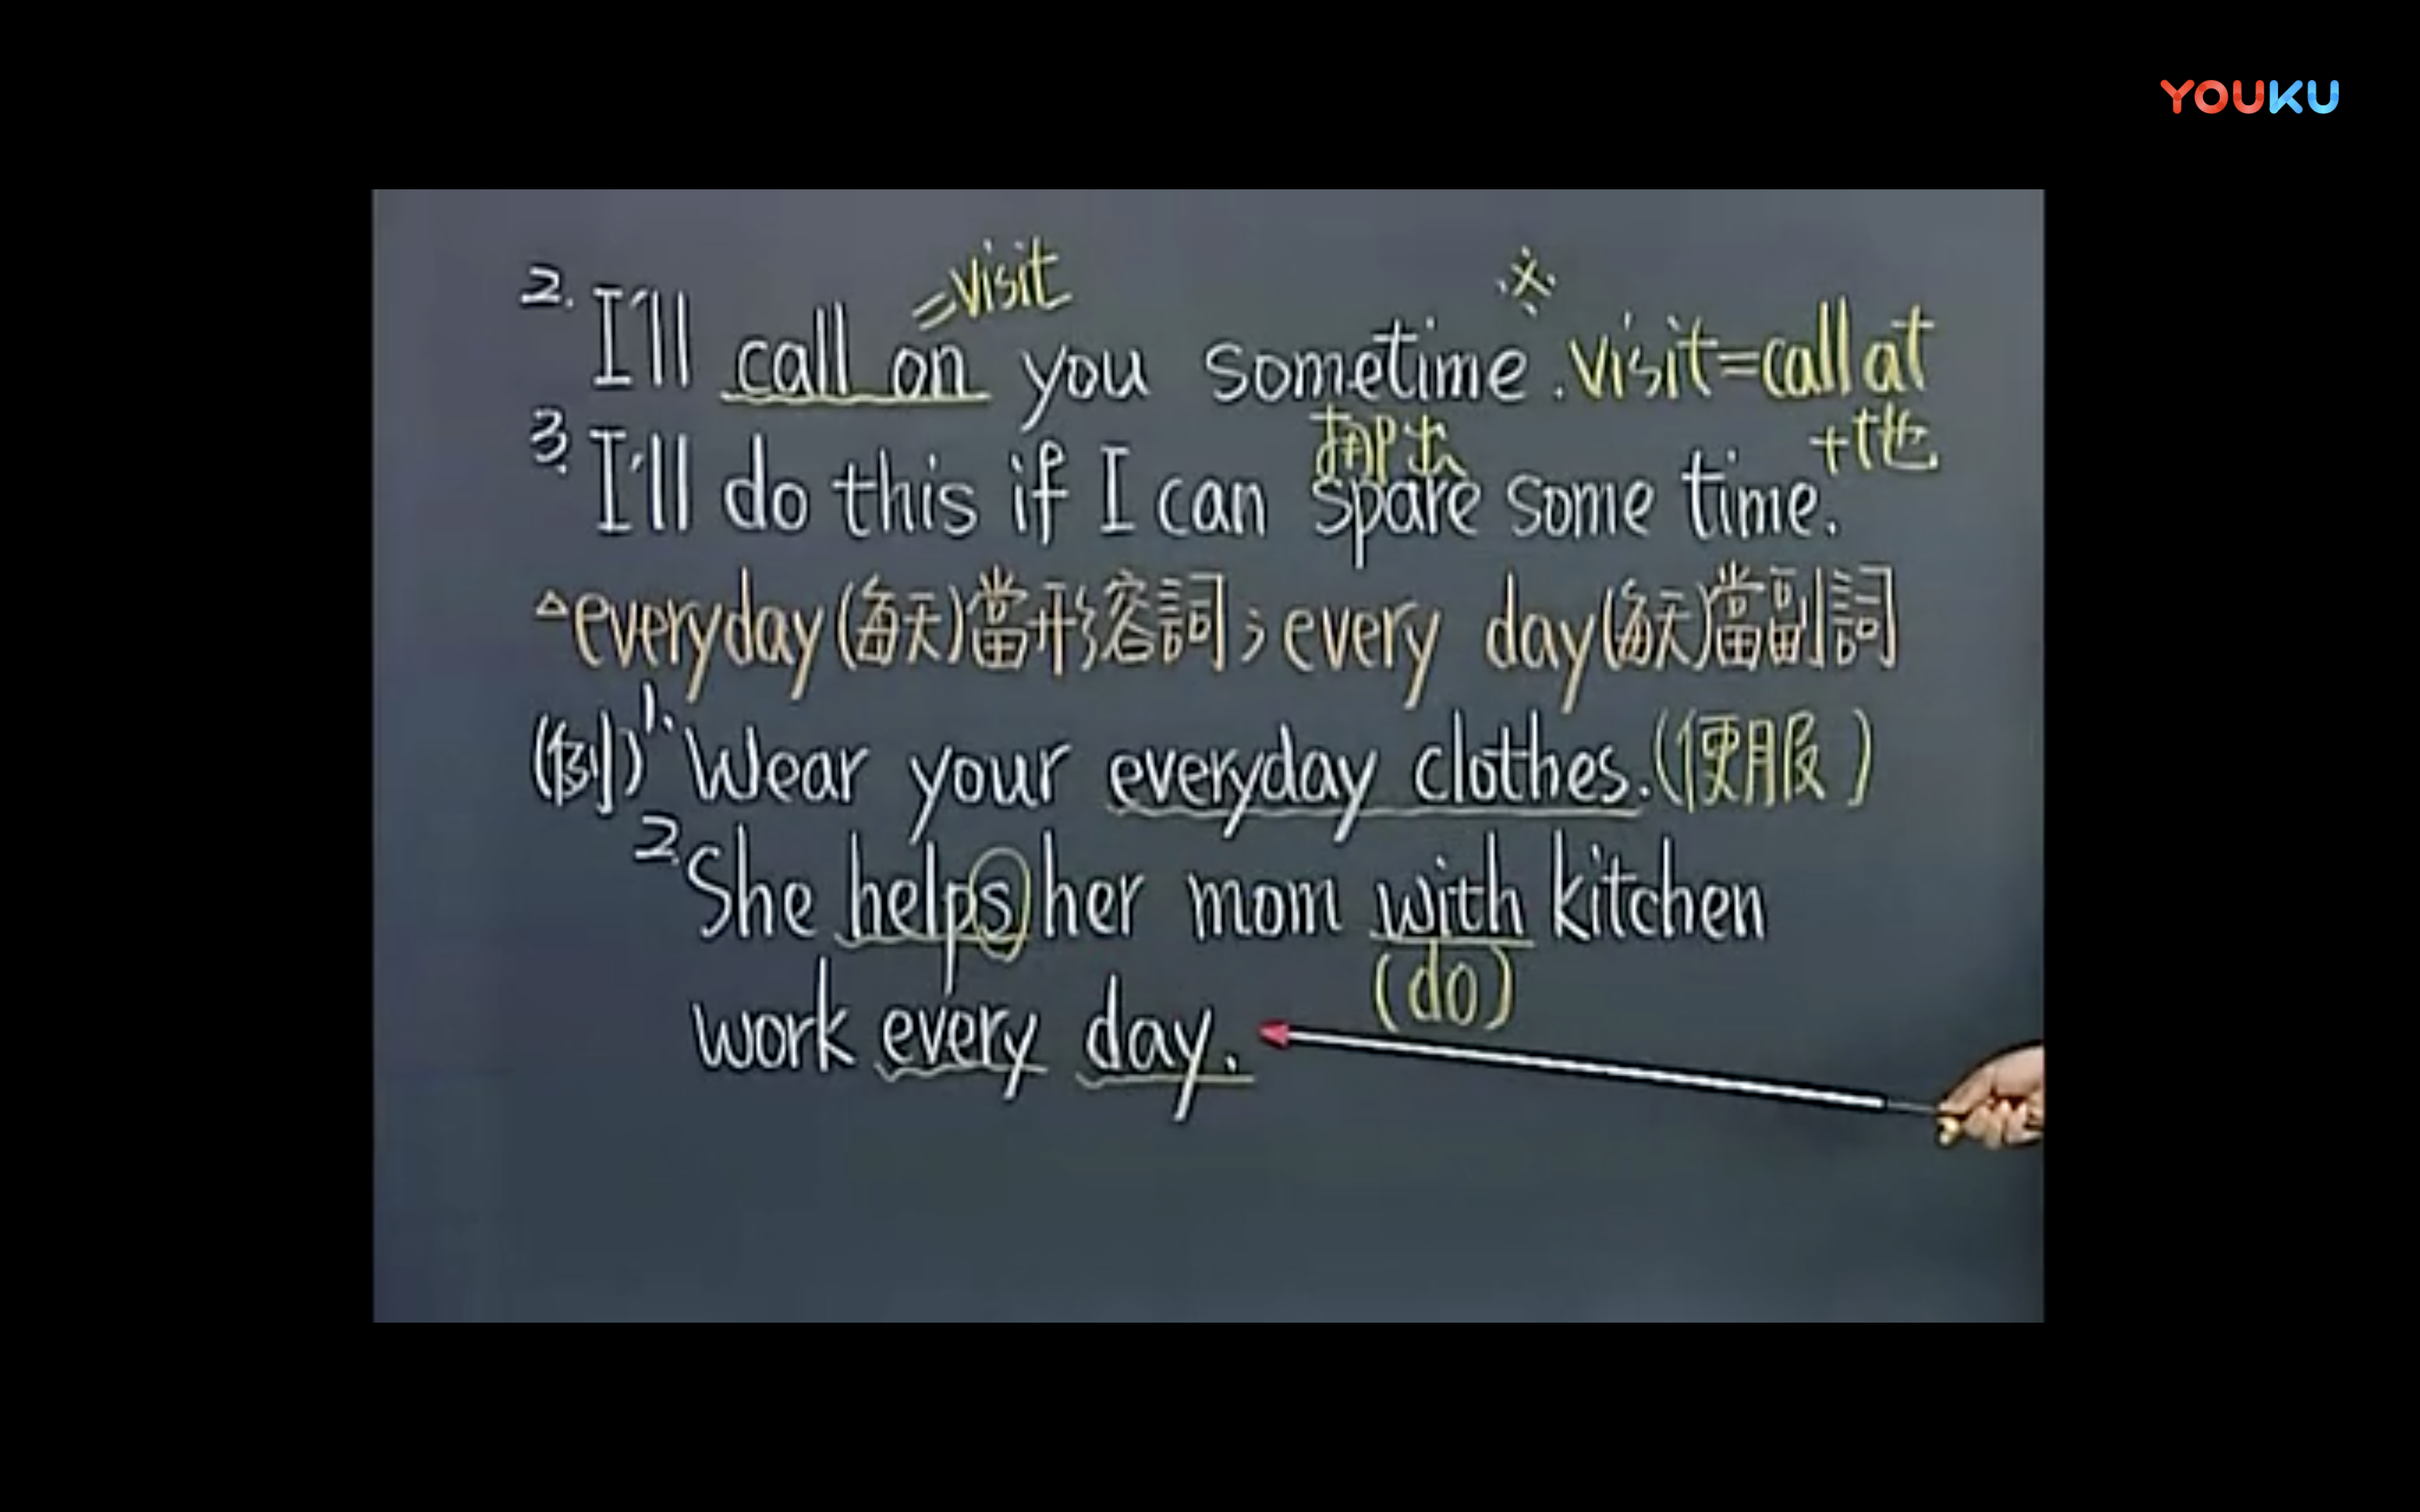 YOUKU
=visit
2. I'll call on you sometime. ※ visit=call at
+地
挪出
3. I'll do this if I can spare some time.
△everyday(每天)當形容詞；every day(每天)當副詞
(例)1. Wear your everyday clothes.(便服)
2. She helps her mom with kitchen
(do)
work every day.